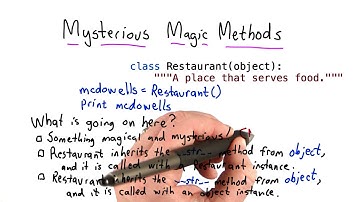 Mysterious Magic Methods
class Restaurant(object):
"""A place that serves food."""
mcdowells = Restaurant()
print mcdowells
What is going on here?
□ Something magical and mysterious
□ Restaurant inherits the __str__ method from object,
and it is called with a Restaurant instance.
□ Restaurant inherits the __str__ method from object,
and it is called with an object instance.